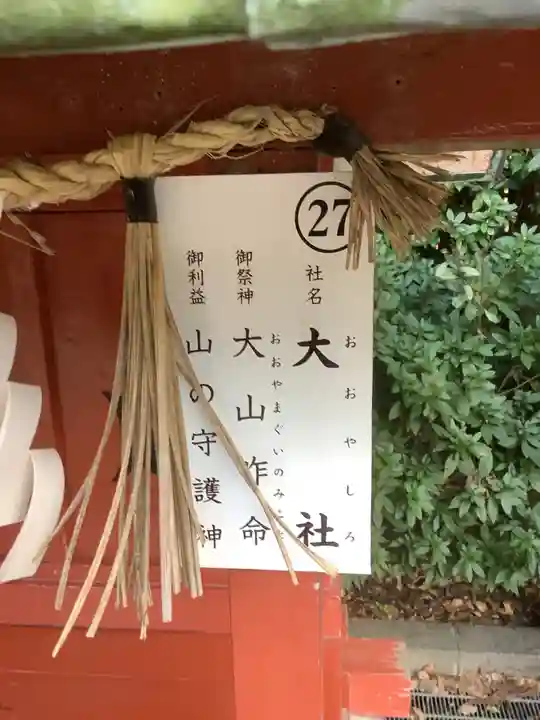 27
社名 大社
おおやしろ
御祭神 大山咋命
おおやまぐいのみこと
御利益 山の守護神